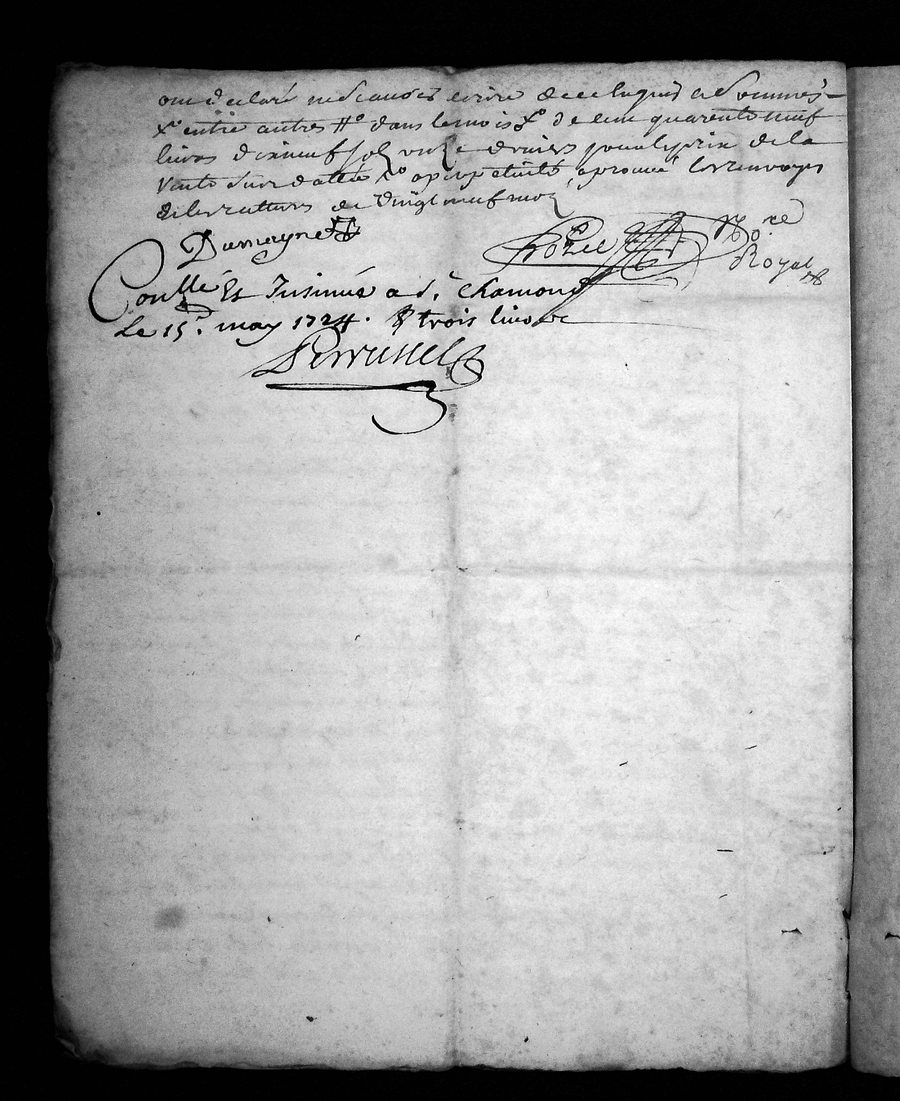 ont declaré ne scavoir ecrire de ce enquis et sommés
Xº entre autres ttº dans le mois Xº de cent quarente neuf
livres dixneuf sols onze deniers pour le prix de la
vente aprouvé les renvoyes
et les ratures de vingt neuf mots
Dumaynel
Rozel Nore
Royal
Conllé Et Insinué a St Chamond
Le 15e may 1724. R trois livres
Perrussel